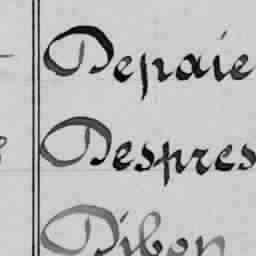 Depaie
Despres
Dibon